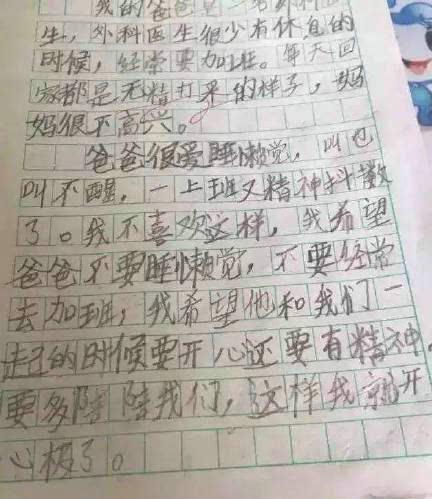 我的爸爸是一名外科医
生，外科医生很少有休息的
时候，经常要加班。每天回
家都是无精打采的样子，妈
妈很不高兴。
爸爸很爱睡懒觉，叫也
叫不醒，一上班又精神抖擞
了。我不喜欢这样，我希望
爸爸不要睡懒觉，不要经常
去加班，我希望他和我们一
起的时候要开心还要有精神，
要多陪陪我们，这样我就开
心极了。